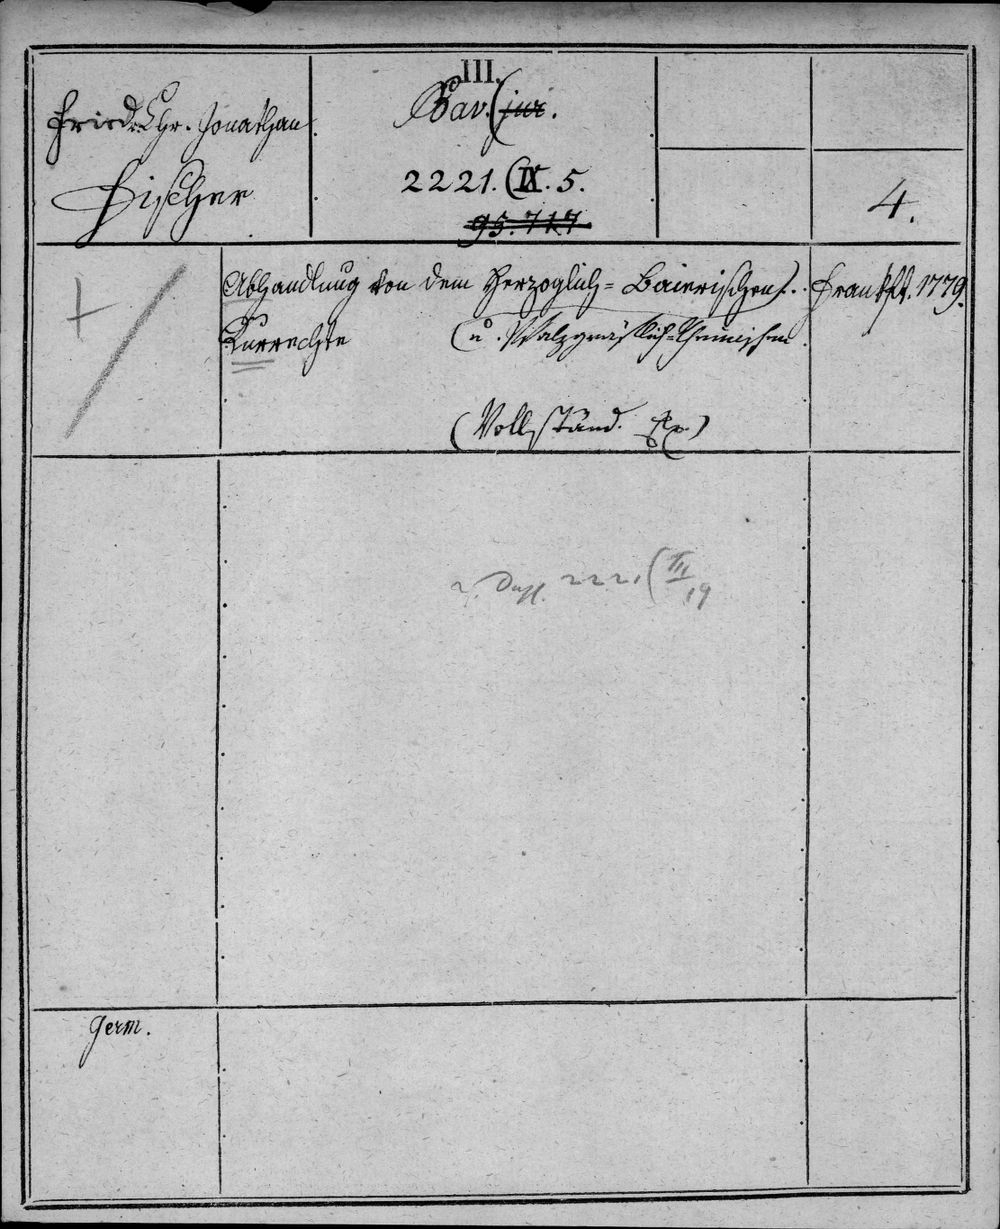 III.
Friedr. Chr. Jonathan
Fischer
Bav. (jur.
2221. (IX. 5.
95. 717
4.
Abhandlung von dem Herzoglich=Baierischen
Kurrechte
(u. Pfalzgräflich=Rheinischen
(Vollständ. Ex.)
Frankft. 1779.
2. 2221 (III
19
Germ.